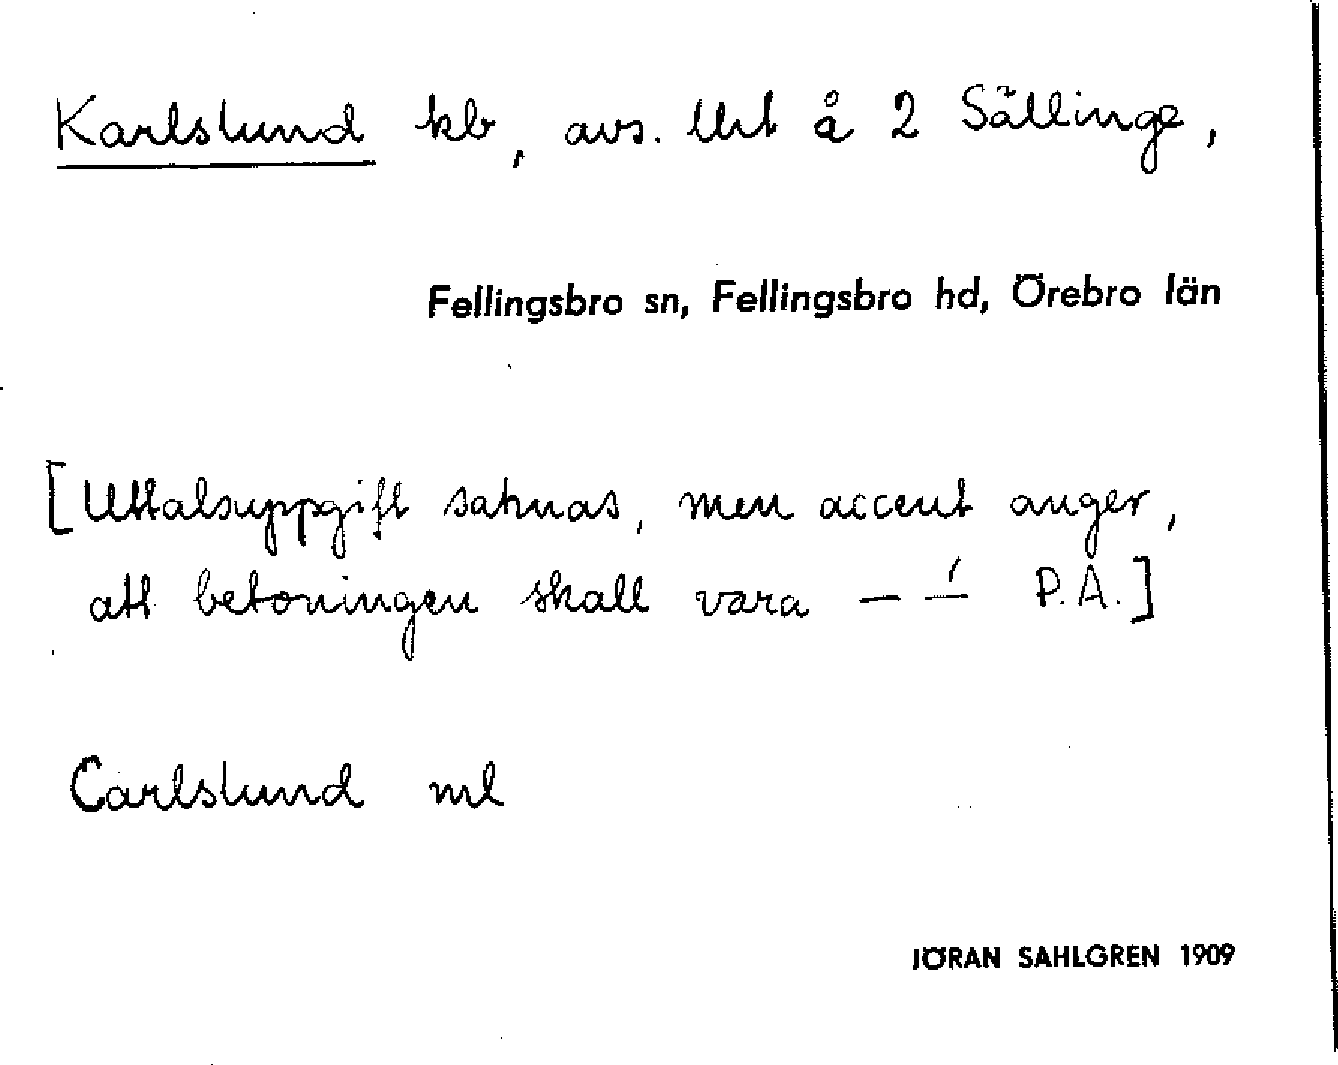 Karlslund kb, avs. Urt å 2 Sällinge,
Fellingsbro sn, Fellingsbro hd, Örebro län
[Uttalsuppgift saknas, men accent anger,
att betoningen skall vara – –́ P.Å.]
Carlslund ml
JÖRAN SAHLGREN 1909